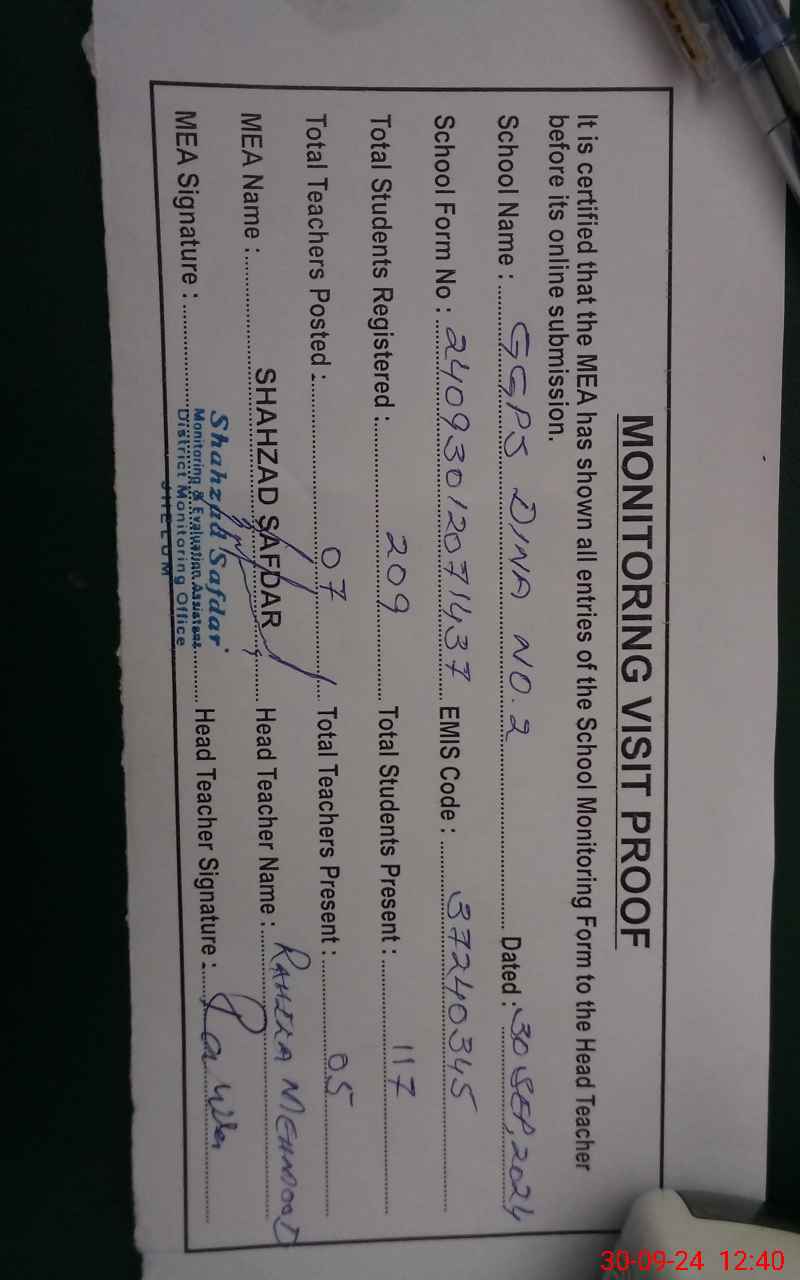 MONITORING VISIT PROOF
It is certified that the MEA has shown all entries of the School Monitoring Form to the Head Teacher
before its online submission.
School Name : GGPS DINA NO.2 Dated : 30 SEP, 2024
School Form No : 24093012071437 EMIS Code : 37240345
Total Students Registered : 209 Total Students Present : 117
Total Teachers Posted : 07 Total Teachers Present : 05
MEA Name : SHAHZAD SAFDAR Head Teacher Name : MEHMOOD
MEA Signature : Head Teacher Signature :
Shahzad Safdar
Monitoring & Evaluation Assistant
District Monitoring Office
JHELUM
30-09-24 12:40